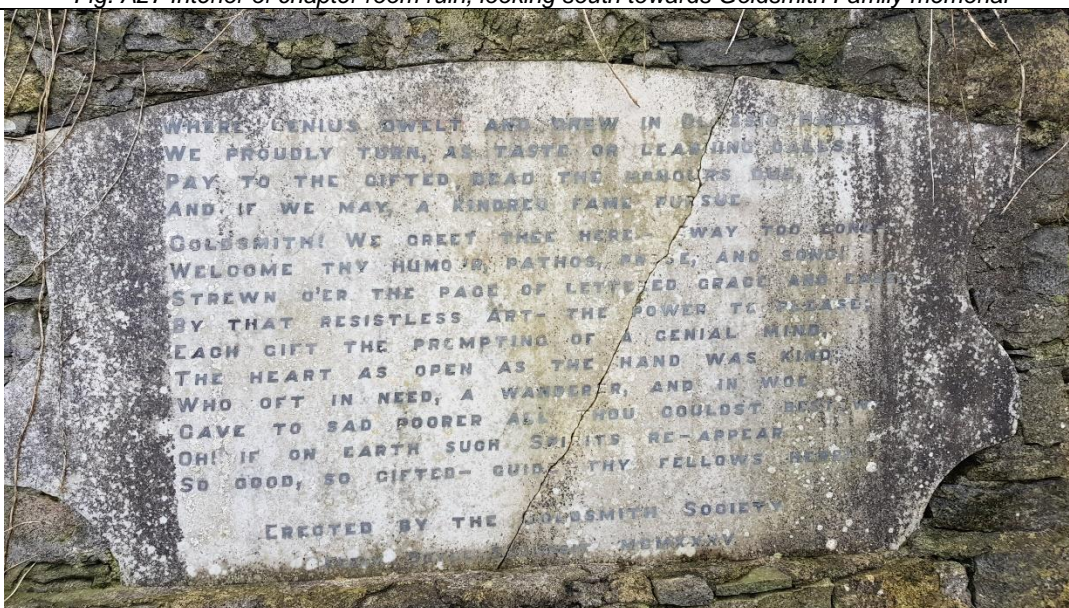 Fig. A27 Interior of chapter room ruin, looking south towards Goldsmith Family memorial
WHERE GENIUS DWELT AND GREW IN CLASSIC HALLS
WE PROUDLY TURN, AS TASTE OR LEARNING CALLS
PAY TO THE GIFTED DEAD THE HONOURS DUE,
AND IF WE MAY, A KINDRED FAME PURSUE
GOLDSMITH! WE GREET THEE HERE— AWAY TOO LONG
WELCOME THY HUMOUR, PATHOS, AND SONG!
STREWN O'ER THE PAGE OF LETTERED GRACE AND EASE
BY THAT RESISTLESS ART— THE POWER TO PLEASE;
EACH GIFT THE PROMPTING OF A GENIAL MIND,
THE HEART AS OPEN AS THE HAND WAS KIND;
WHO OFT IN NEED, A WANDERER, AND IN WOE
GAVE TO SAD POORER ALL THOU COULDST BESTOW
OH! IF ON EARTH SUCH SPIRITS RE-APPEAR
SO GOOD, SO GIFTED— GUIDE THY FELLOWS HERE
ERECTED BY THE GOLDSMITH SOCIETY
MCMXXXV